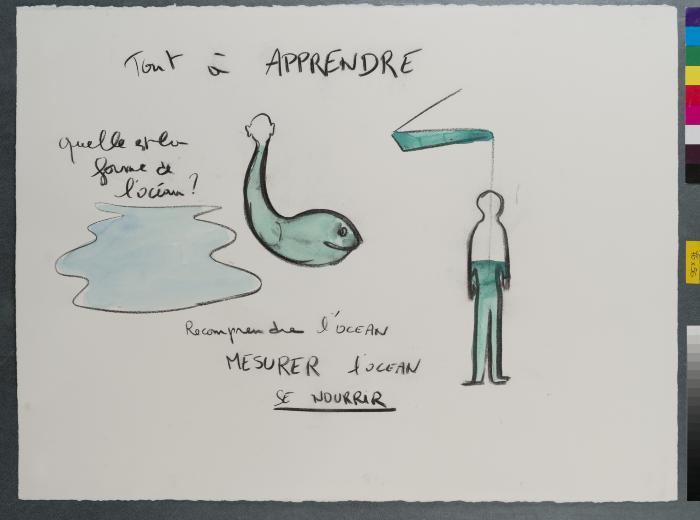 Tout à APPRENDRE
quelle est la
forme de
l'océan ?
Recomprendre l'OCEAN
MESURER l'OCEAN
SE NOURRIR